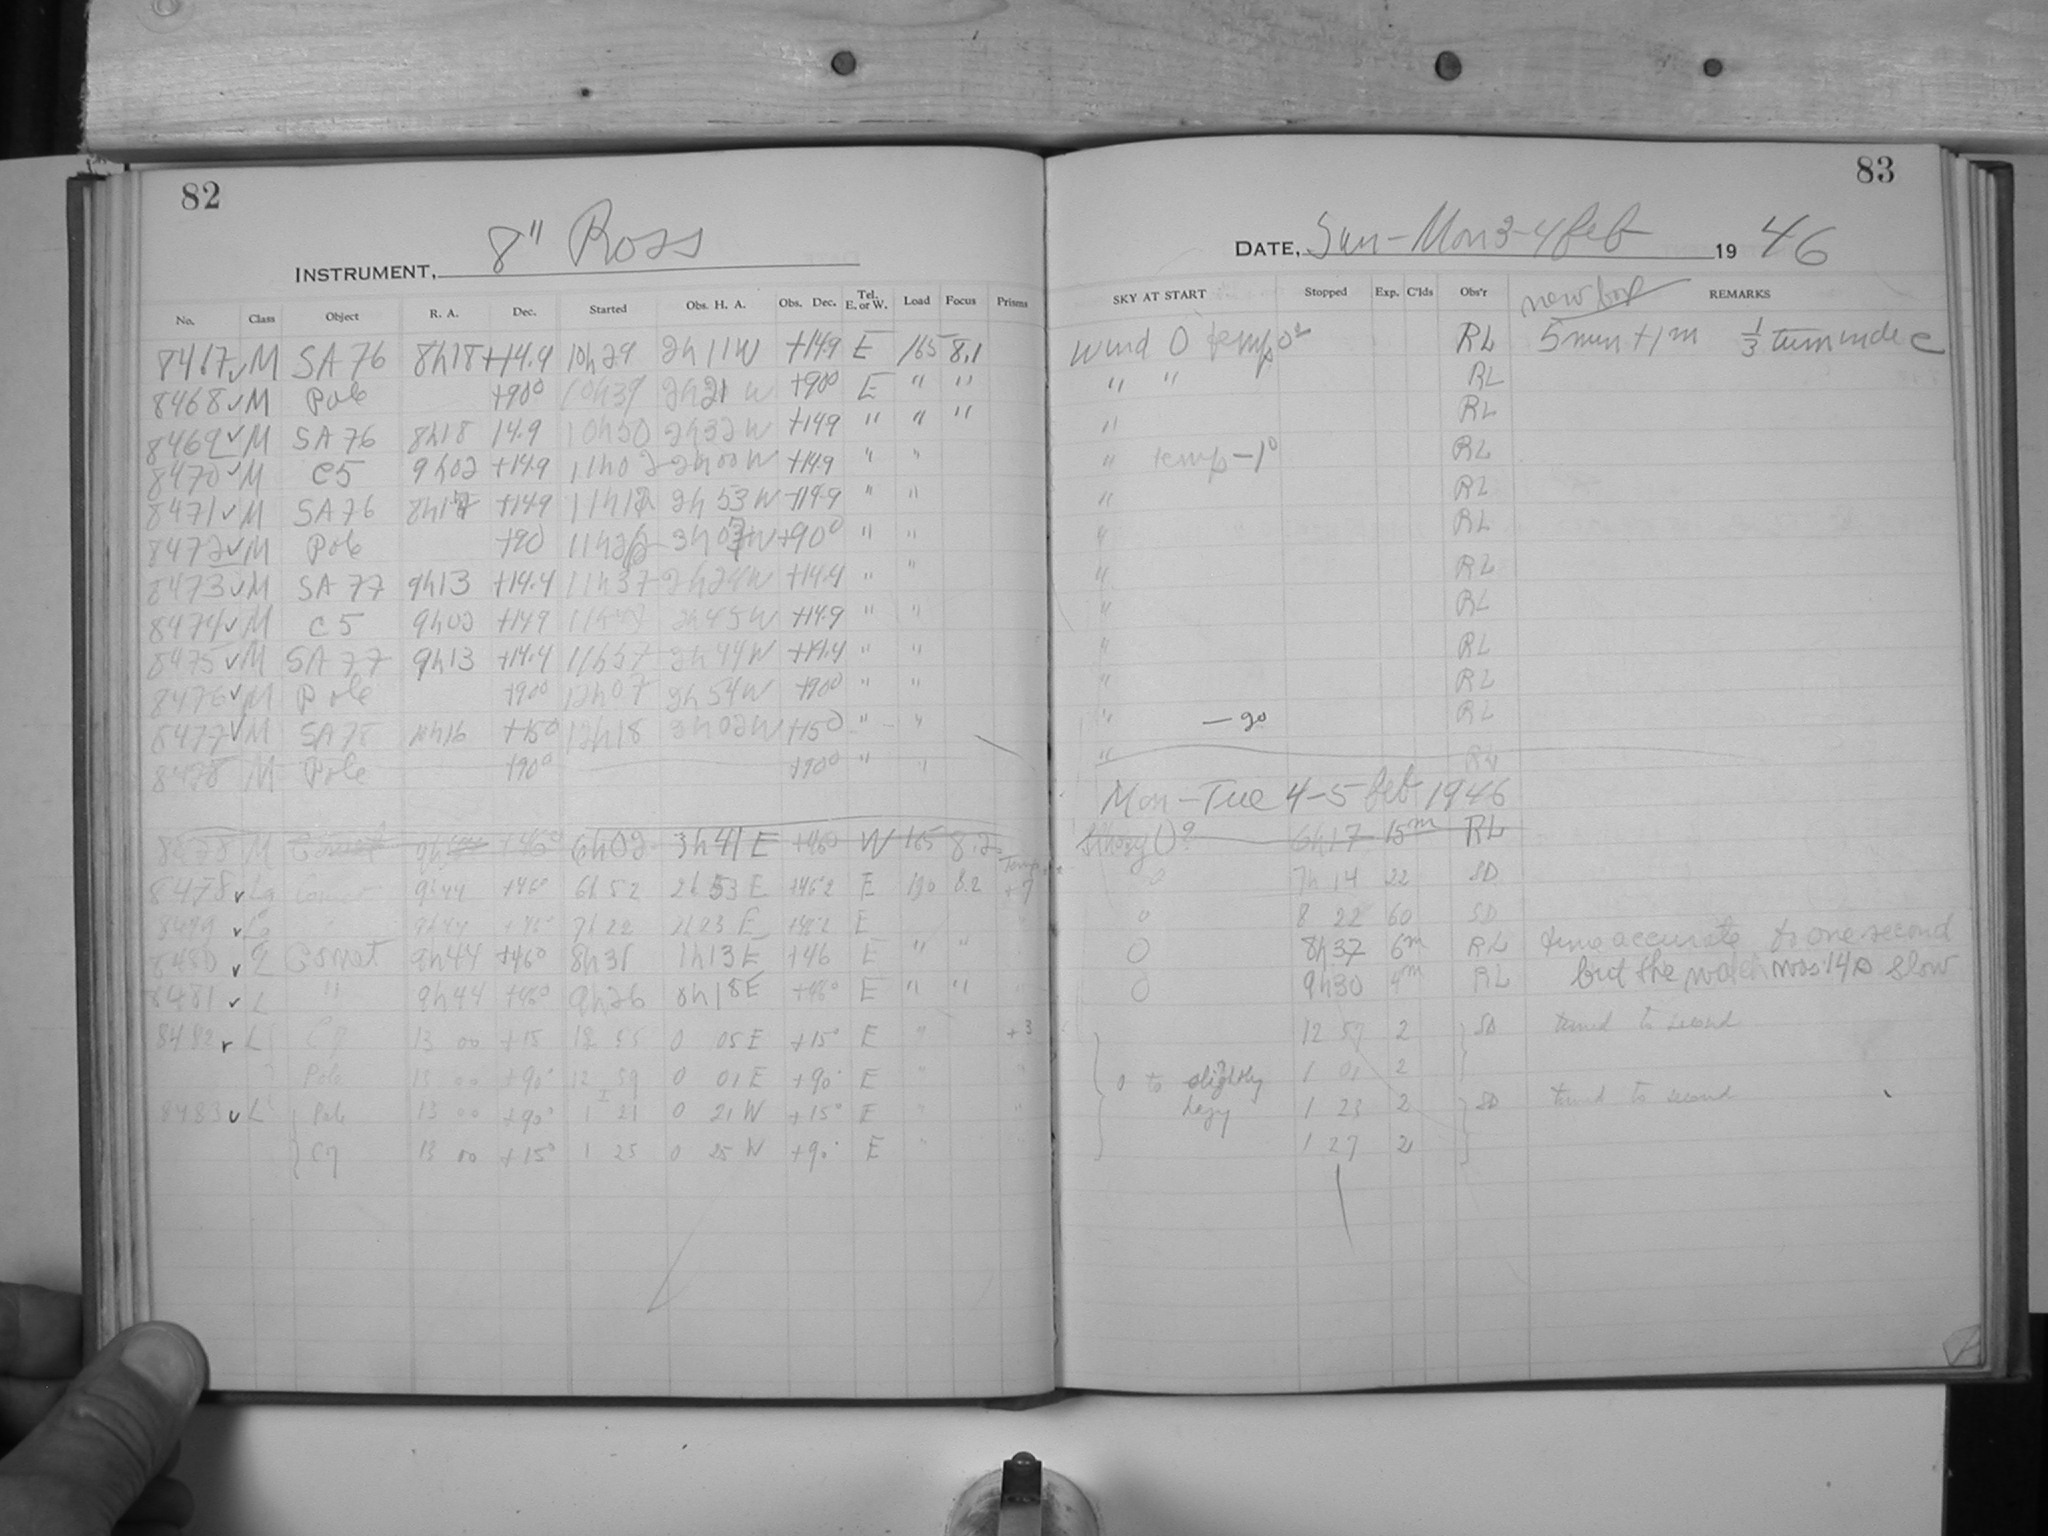 82
INSTRUMENT, 8" Ross
No. Class Object R. A. Dec. Started Obs. H. A. Obs. Dec. Tel. E. or W. Load Focus Prisms
8467 ✓ M SA 76 8h18 +14.9 10h29 2h11W +14.9 E 165 8.1
8468 ✓ M Pole +90° 10h39 2h21 W +90° E " "
8469 ✓ M SA 76 8h18 14.9 10h50 2h32W +14.9 " " "
8470 ✓ M C5 9h02 +14.9 11h02 W +14.9 " "
8471 ✓ M SA 76 +14.9 2h53W +14.9 " "
8472 ✓ M Pole +90 W +90° " "
8473 ✓ M SA 77 9h13 +14.4 11h37 2h24W +14.4 " "
8474 ✓ M C5 9h02 +14.9 2h45W +14.9 " "
8475 ✓ M SA 77 9h13 +14.4 11h57 2h44W +14.4 " "
8476 ✓ M Pole +90° 12h07 2h54W +90° " "
8477 ✓ M +15° 12h18 3h02W +15° " "
8478 M Pole +90° +90° " "
8478 M 6h02 3h41E +46° W 165 8.2
8478 ✓ 9h44 +46° 6h52 2h53E E 8.2 +7
8479 ✓ 9h44 7h22 2h23 E E
8480 ✓ L Comet 9h44 +46° 8h31 1h13E +46 E " "
8481 ✓ L " 9h44 +46° 9h26 0h18E +46° E " "
8482 ✓ L 13 00 +15 12 55 0 05E +15° E " +3
Pole 13 00 +90° 12 59 0 01E +90° E "
8483 ✓ L Pole 13 00 +90° 1 21 0 21W +15° E "
13 00 +15° 1 25 0 25W +90° E "
83
DATE, Sun-Mon 3-4 Feb 1946
SKY AT START Stopped Exp. C'lds Obs'r REMARKS
new box
Wind 0 temp 0° RL 5 min + 1m 1/3 turn in dec
" " RL
" RL
" temp -1° RL
" RL
" RL
" RL
" RL
" RL
" RL
" -2° RL
" RL
Mon-Tue 4-5 Feb 1946
6h17 15m RL
0 7h14 22 SD
0 8 22 60 SD
0 8h37 6m RL time accurate to one second
0 9h30 4m RL but the watch was 14s slow
12 57 2 SD timed to second
0 to slightly 1 01 2
hazy 1 23 2 SD timed to second
1 27 2